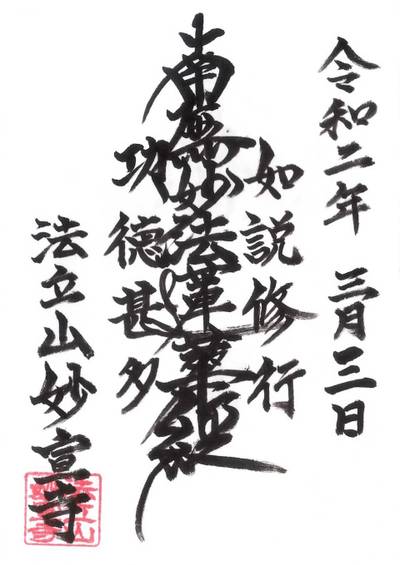 令和二年 三月三日
如説修行
南無妙法蓮華経
功徳甚多
法立山妙宣寺